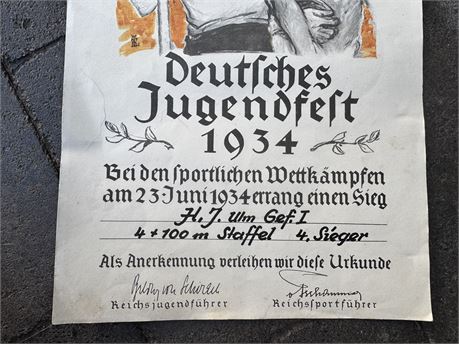 Deutsches
Jugendfest
1934
Bei den sportlichen Wettkämpfen
am 23 Juni 1934 errang einen Sieg
H.J. Ulm Gef. I
4 + 100 m Staffel 4. Sieger
Als Anerkennung verleihen wir diese Urkunde
Reichsjugendführer
Reichssportführer